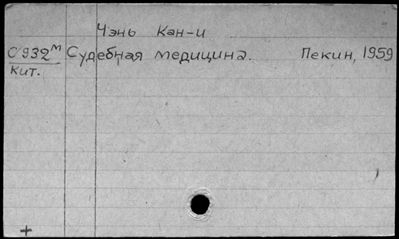 Чэнь Кан-и
С932м Судебная медицина. Пекин, 1959
Кит.
+